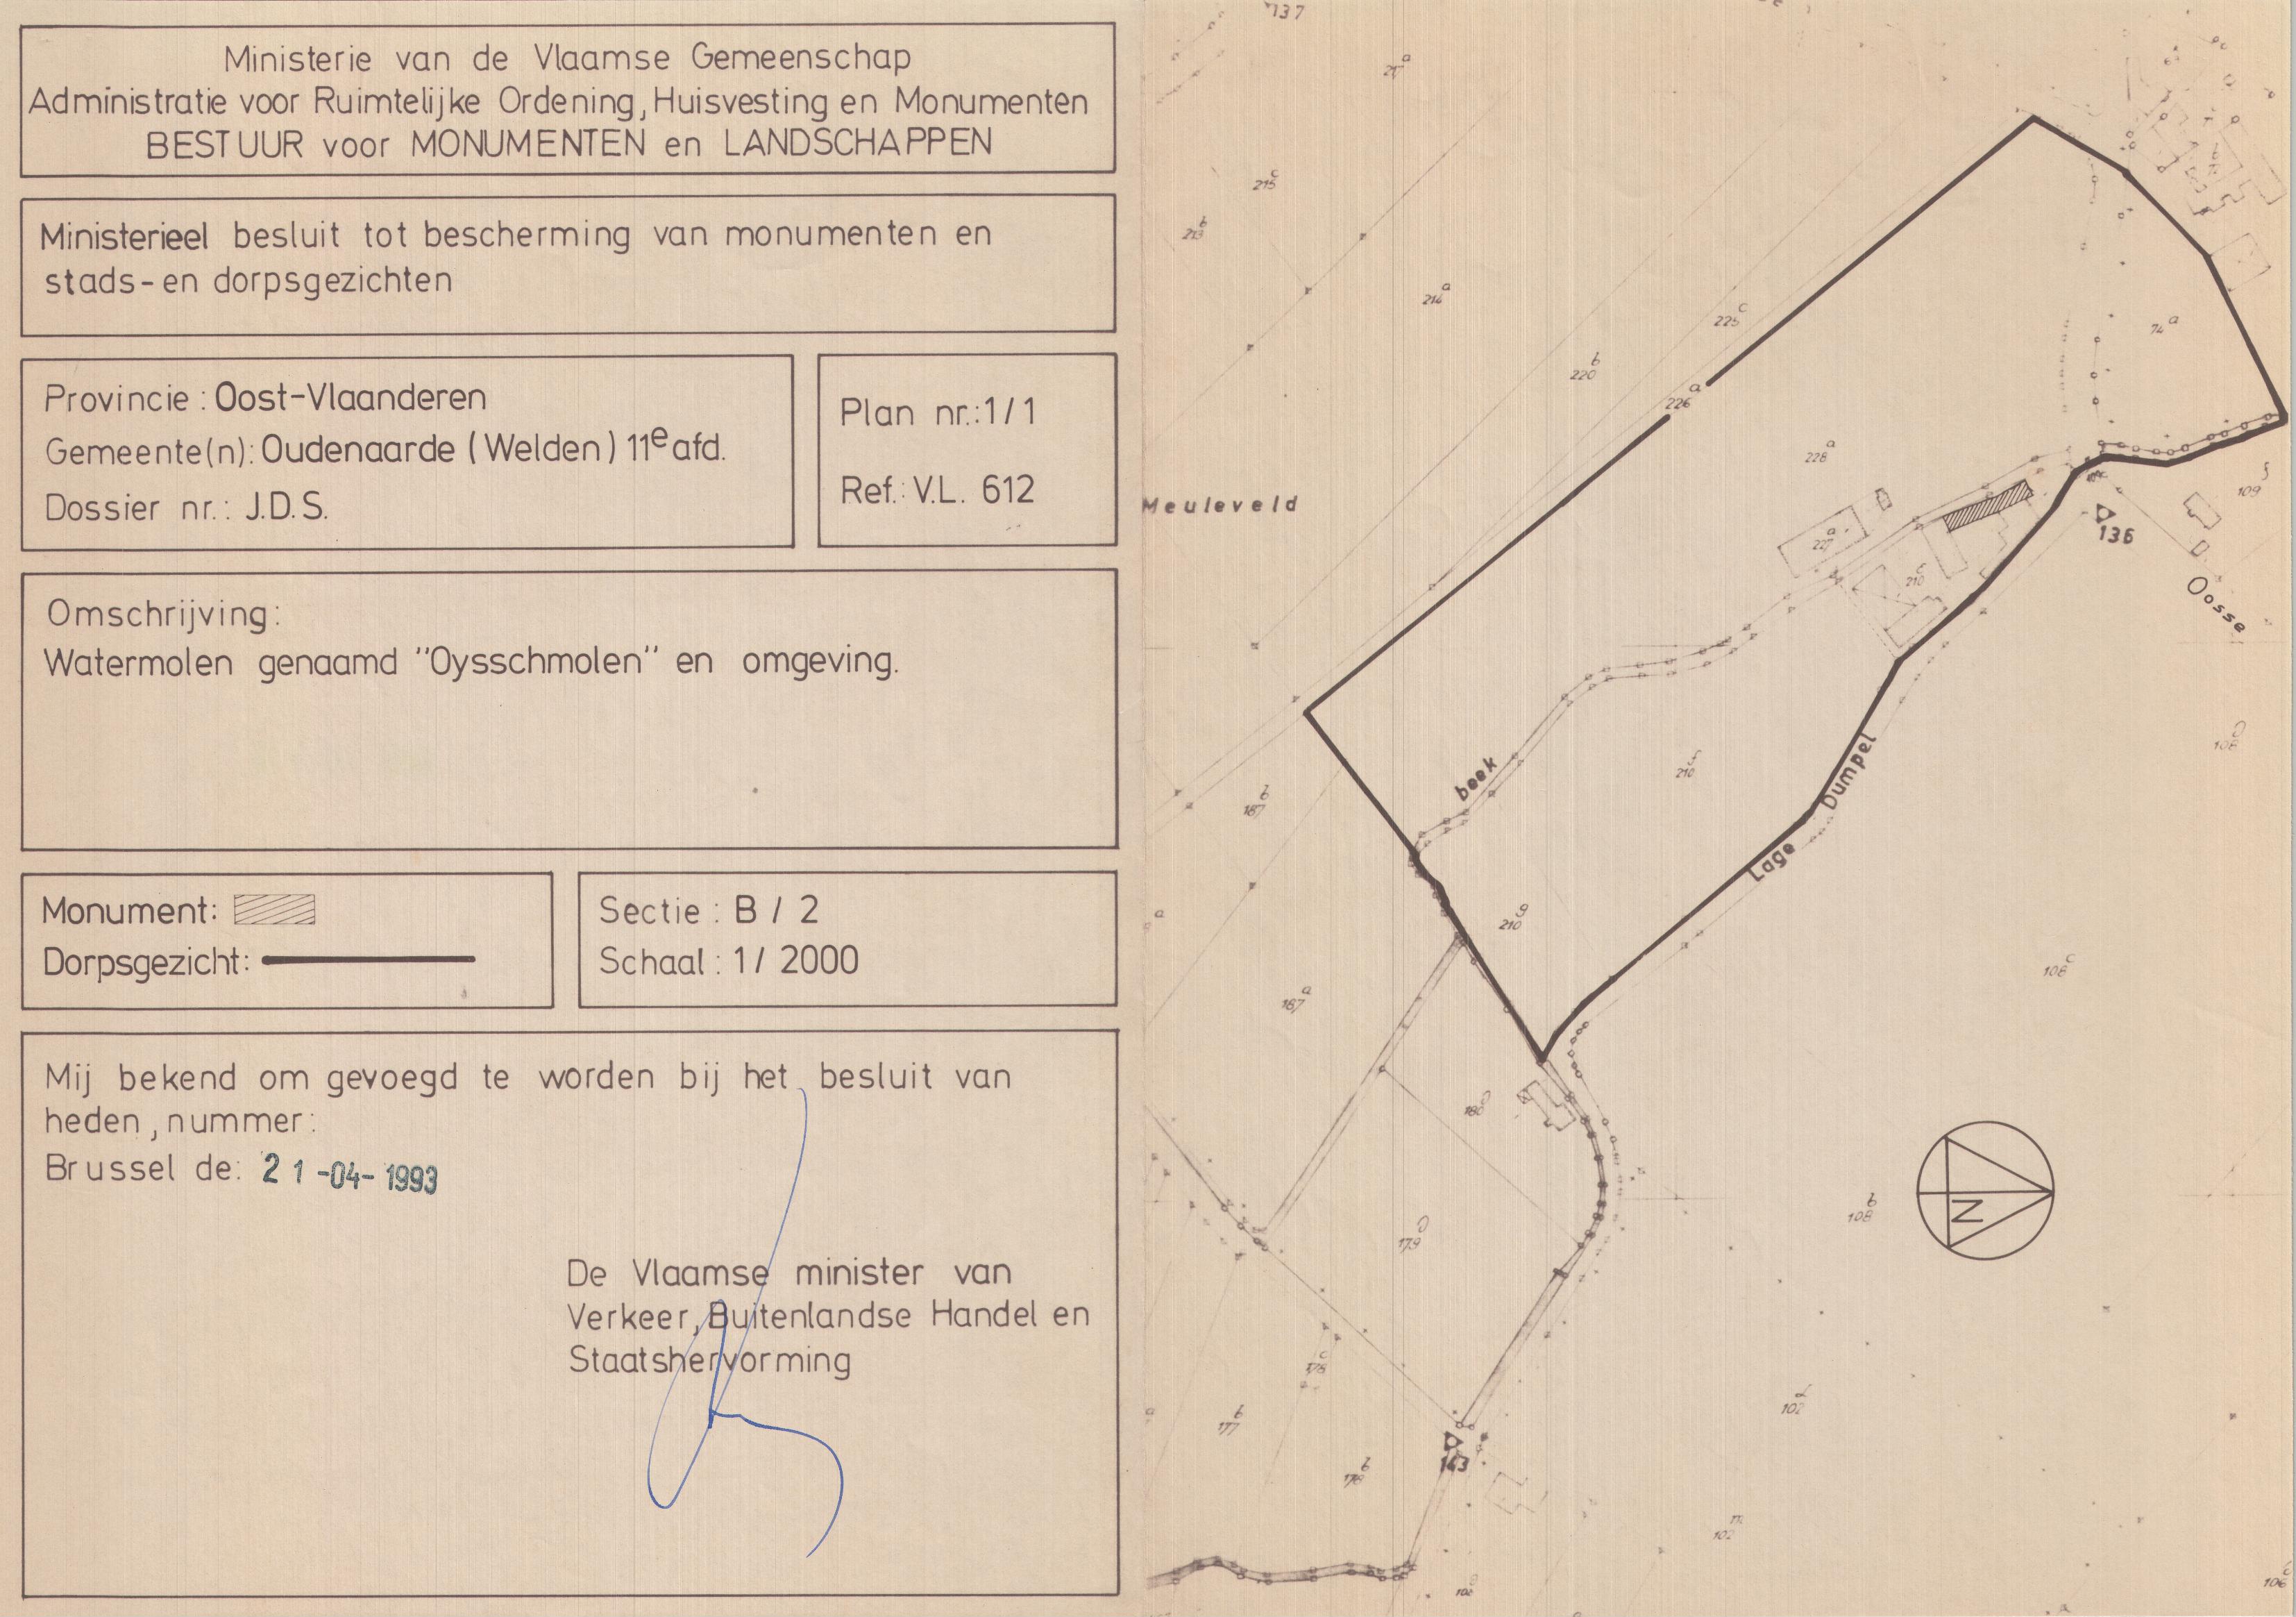 Ministerie van de Vlaamse Gemeenschap
Administratie voor Ruimtelijke Ordening, Huisvesting en Monumenten
BESTUUR voor MONUMENTEN en LANDSCHAPPEN
Ministerieel besluit tot bescherming van monumenten en
stads-en dorpsgezichten
Provincie: Oost-Vlaanderen
Gemeente(n): Oudenaarde (Welden) 11e afd.
Dossier nr.: J.D.S.
Plan nr.: 1/1
Ref.: V.L. 612
Omschrijving:
Watermolen genaamd "Oysschmolen" en omgeving.
Monument:
Dorpsgezicht:
Sectie: B / 2
Schaal: 1/ 2000
Mij bekend om gevoegd te worden bij het besluit van
heden, nummer:
Brussel de: 21-04-1993
De Vlaamse minister van
Verkeer, Buitenlandse Handel en
Staatshervorming
137
215 c
213 b
214 a
225 c
220 b
226 a
74 a
228 a
109
Meuleveld
136
227 a
210 c
Oosse
beek
210 f
Dumpel
Lage
187 b
108
210 g
187 a
108 c
180
108 b
N
179
178 c
177 b
102
143
178 b
102 m
106